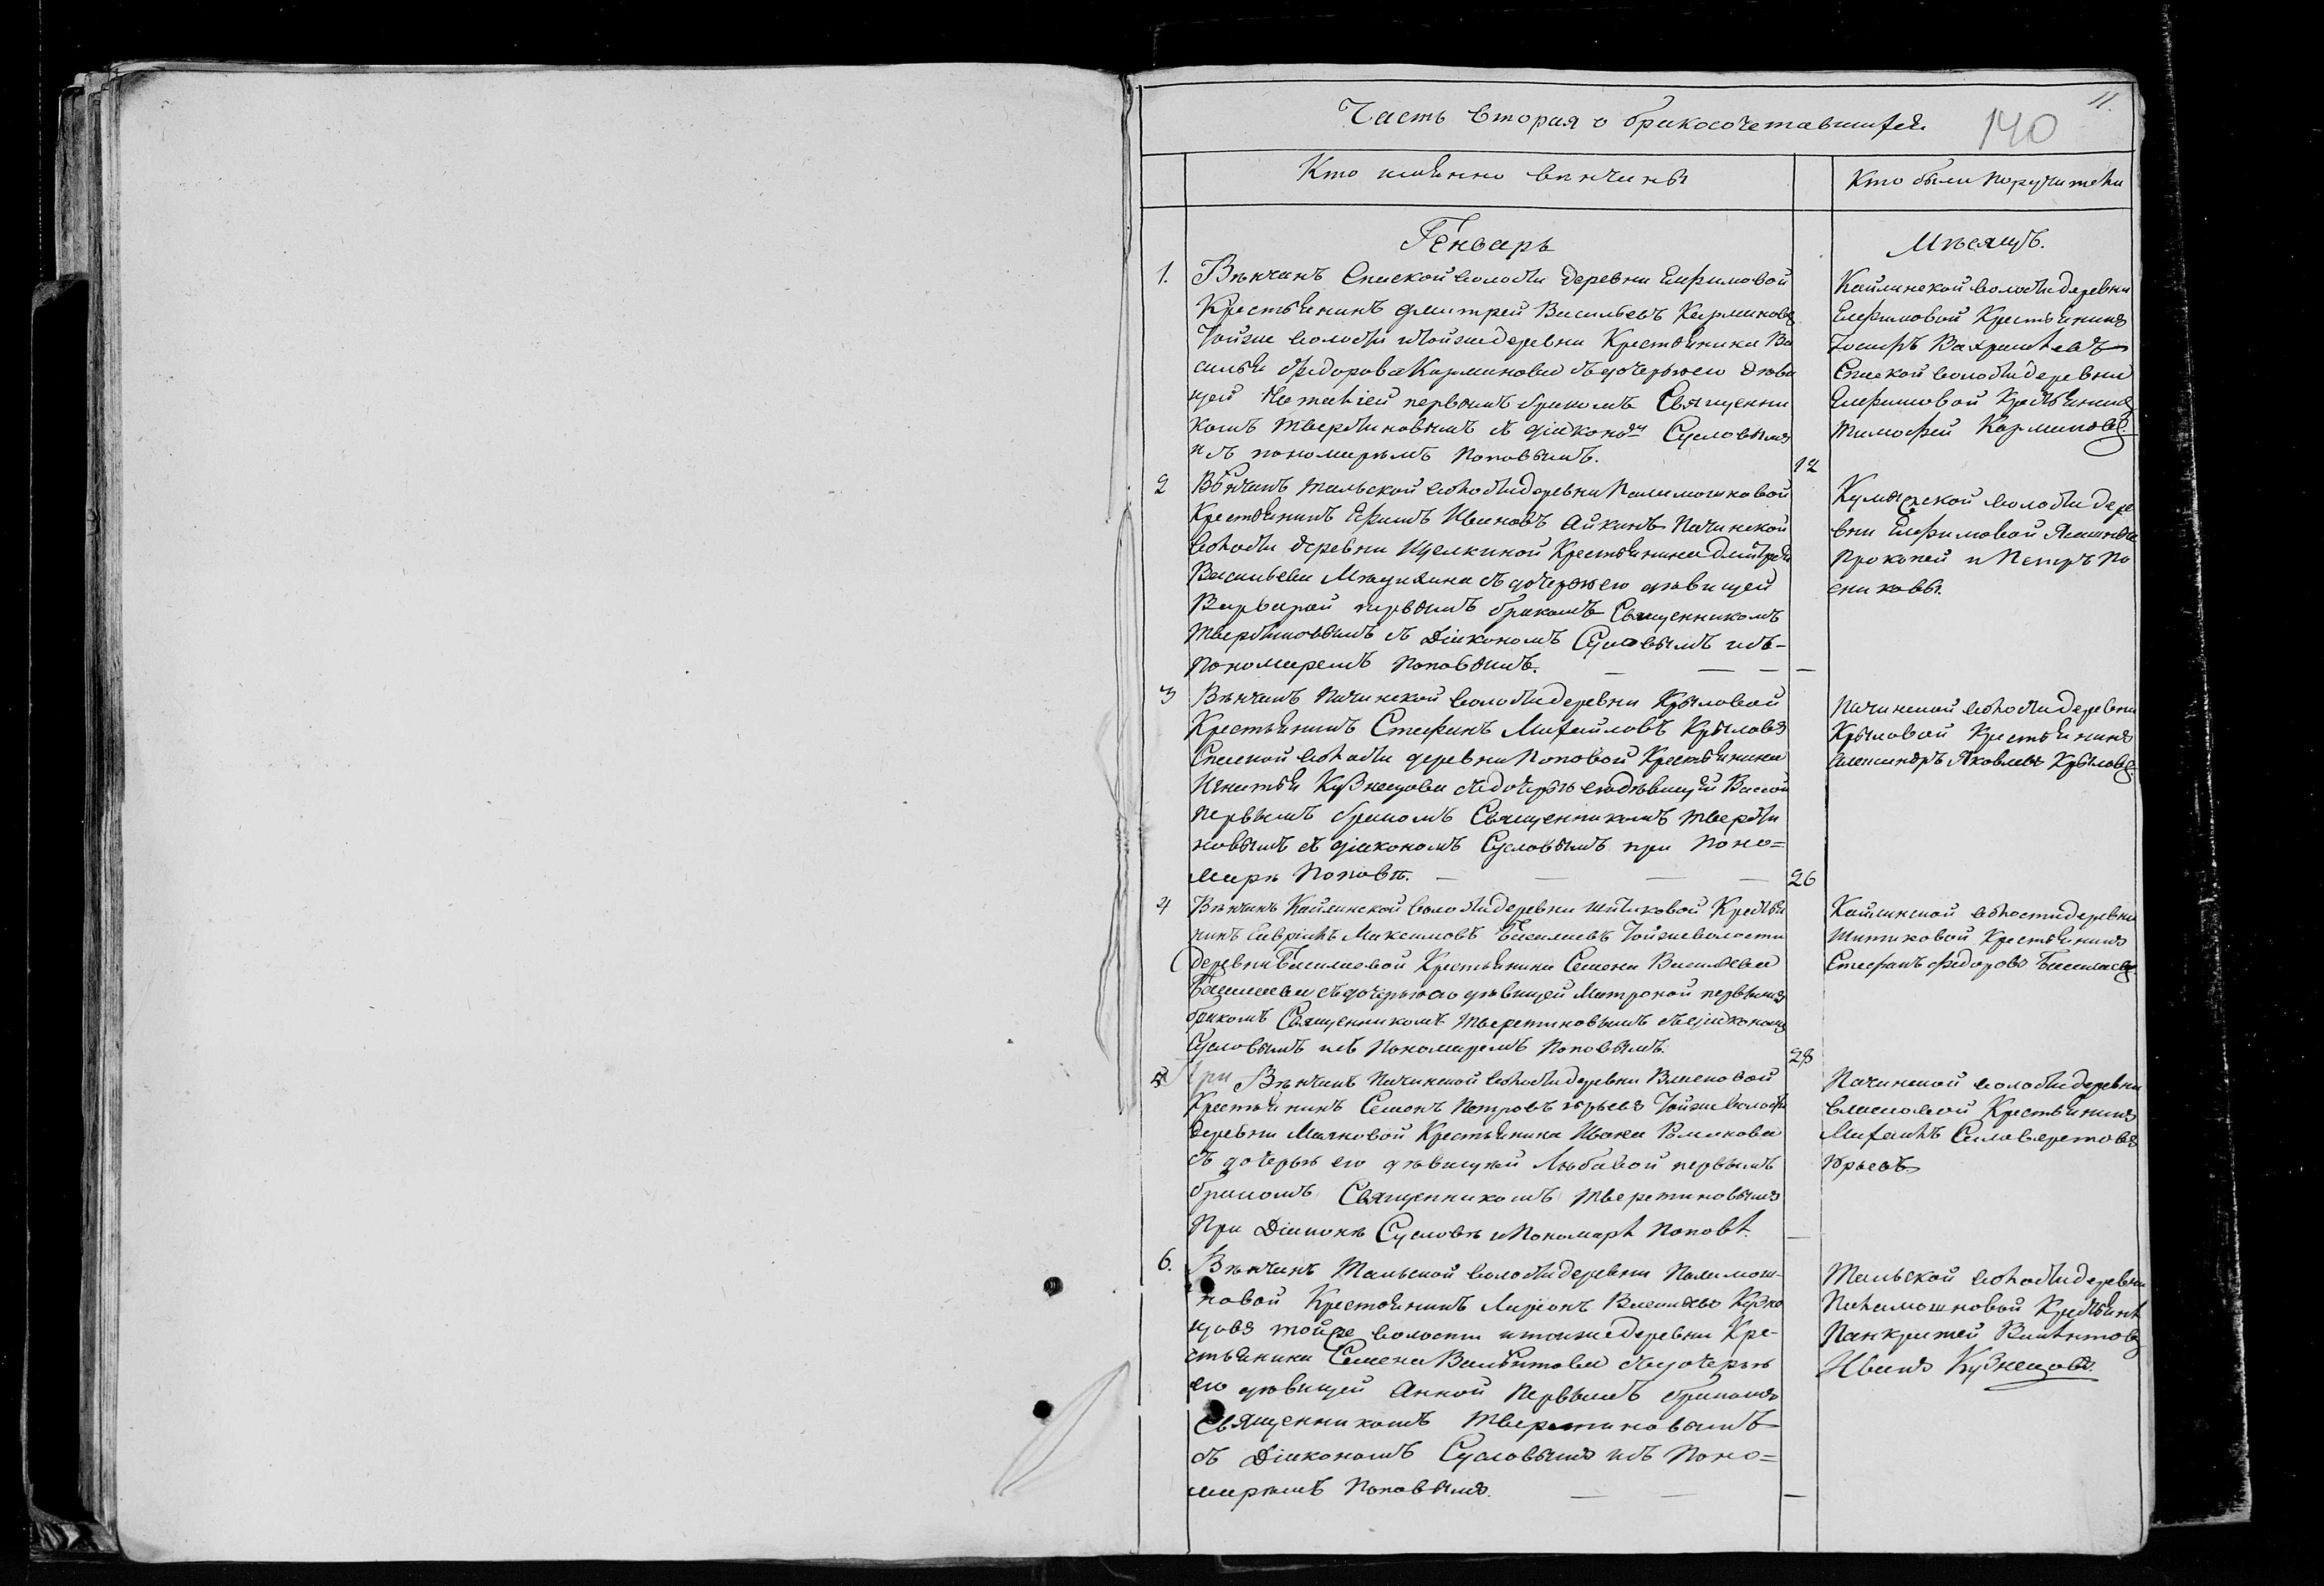 11.
Часть вторая о бракосочетавшихся
140
Кто именно венчаны
Кто были поручители
Генварь
Месяцъ.
1. Вѣнчанъ Спаской волости деревни Елфимовой
Крестьянинъ Дмитрей Васильевъ Карминовъ
Тойже волости итойже деревни Крестьянина Ва
силья Федорова Карминова съ дочерью его дѣви
цей первымъ бракомъ Священни
комъ Тверетиновымъ съ діакономъ Сусловымъ
и съ пономаремъ Поповымъ.
12
Кайлинской волости деревни
Елфимовой Крестьянинъ
Іосифъ
Спаской волости деревни
Елфимовой Крестьянинъ
Тимофей Карминовъ.
2 Вѣнчанъ Тальской волости деревни Паламошновой
Крестьянинъ Ефимъ Ивановъ Айкинъ Пачинской
волости деревни Щелкиной Крестьянина Дмитрея
Васильева съ дочерью его дѣвицей
Варварой первымъ бракомъ Священникомъ
Тверетиновымъ съ Діакономъ Сусловымъ исъ
Пономаремъ Поповымъ.
волости дере
вни Елфимовой
Прокопей и Петръ По
сниковы.
3 Вѣнчанъ Пачинской волости деревни Крыловой
Крестьянинъ Стефанъ Михайловъ Крыловъ
Спаской волости деревни Поповой Крестьянина
Игнатья Кузнецова съ дочерью его дѣвицей Вассой
первымъ бракомъ Священникомъ Тверети
новымъ съ діакономъ Сусловымъ при Поно=
марѣ Поповѣ.
26
Пачинской волости деревни
Крыловой Крестьянинъ
Александръ Яковлевъ Крыловъ.
4 Вѣнчанъ Кайлинской волости деревни Шитиковой Крестья
нинъ Гавріилъ Максимовъ Басалаевъ Тойже волости
деревни Басалаевой Крестьянина Семена Васильева
Басалаева съ дочерью его дѣвицей Матроной первымъ
бракомъ Священникомъ Тверетиновымъ съ діакономъ
Сусловымъ исъ Пономаремъ Поповымъ.
28
Кайлинской волости деревни
Шитиковой Крестьянинъ
Стефанъ Федоровъ Басалаевъ.
5 Вѣнчанъ Пачинской волости деревни Власковой
Крестьянинъ Семенъ Петровъ Юрьевъ Тойже волости
деревни Маяковой Крестьянина Ивана Романова
съ дочерью его дѣвицей Любавой первымъ
бракомъ Священникомъ Тверетиновымъ
При Діаконѣ Сусловѣ и Пономарѣ Поповѣ.
Пачинской волости деревни
Власковой Крестьянинъ
Михаилъ
Юрьевъ.
6. Вѣнчанъ Тальской волости деревни Паламош-
новой Крестьянинъ Ларіонъ Васильевъ Кузне
цовъ тойже волости итойже деревни Кре-
стьянина Семена съ дочерью
его дѣвицей Анной Первымъ бракомъ
Священникомъ Тверетиновымъ
съ Діакономъ Сусловымъ исъ Поно=
маремъ Поповымъ.
Тальской волости деревни
Паламошновой Крестьянѣ
Панкратей
Иванъ Кузнецовъ.